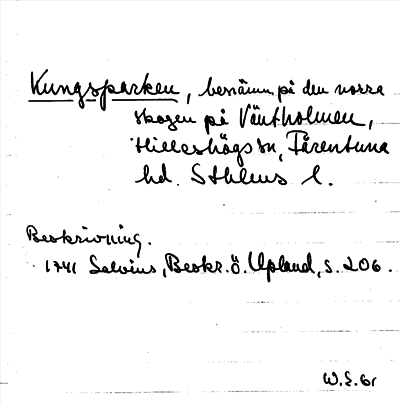 Kungsparken, benämn. på den norra
skogen på Väntholmen,
Hilleshögs sn, Färentuna
hd. Sthlms l.
Beskrivning.
1741 Salvius, Beskr. ö. Upland, s. 206.
W.S. 61